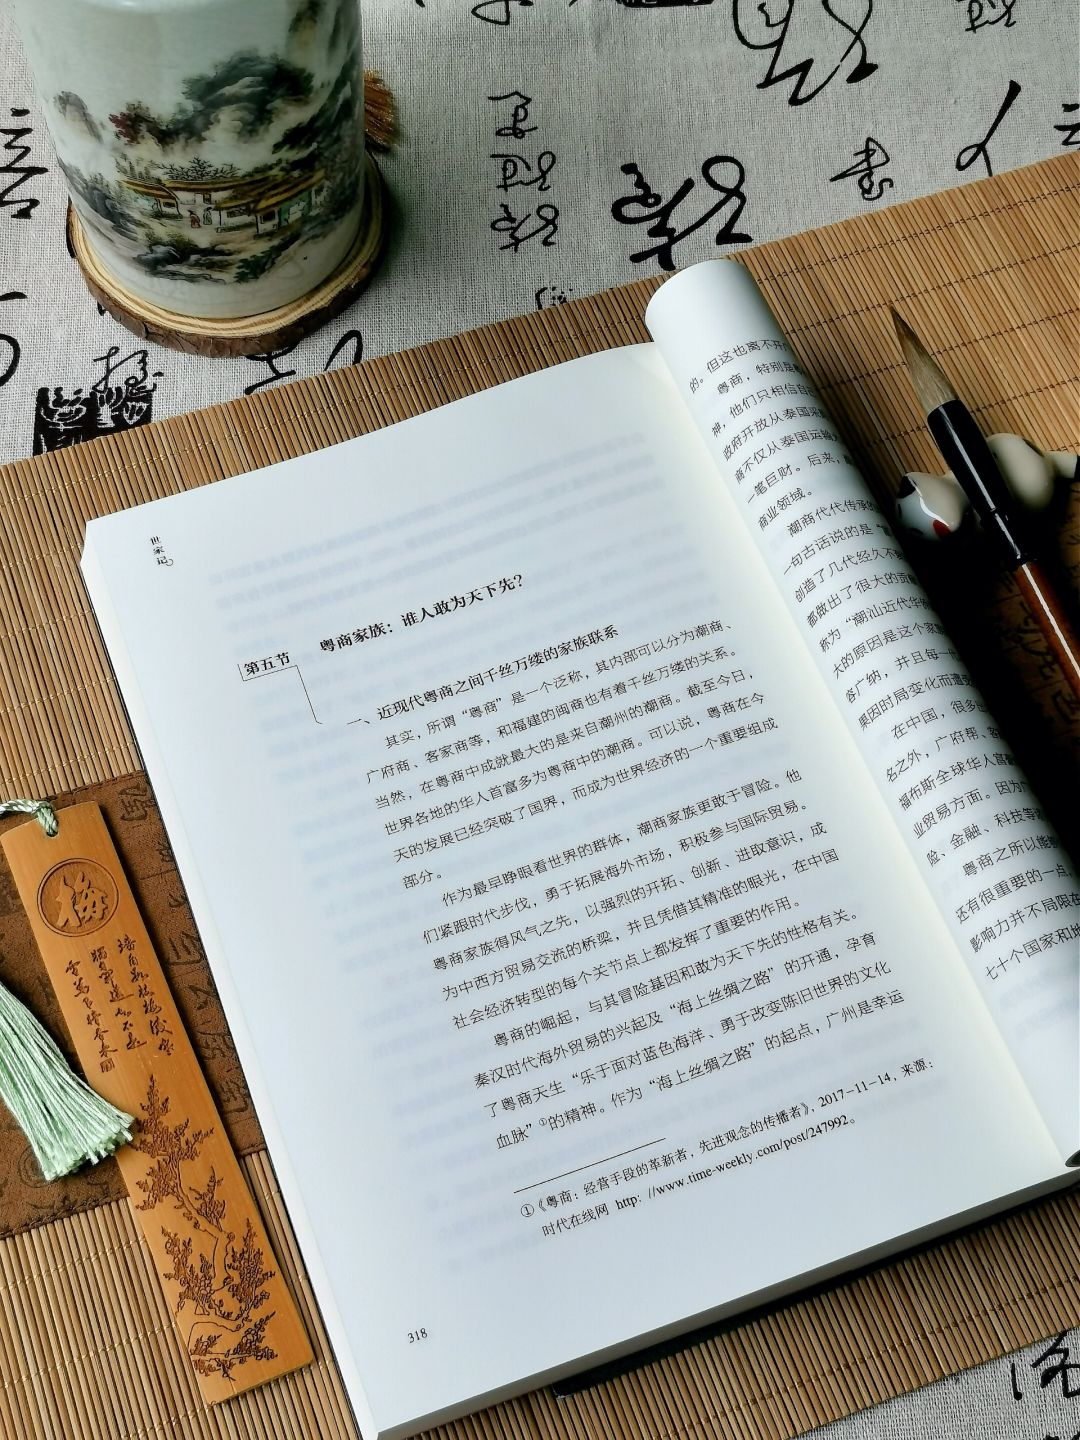 世家记
第五节
粤商家族：谁人敢为天下先？
一、近现代粤商之间千丝万缕的家族联系
其实，所谓“粤商”是一个泛称，其内部可以分为潮商、
广府商、客家商等，和福建的闽商也有着千丝万缕的关系。
当然，在粤商中成就最大的是来自潮州的潮商。截至今日，
世界各地的华人首富多为粤商中的潮商。可以说，粤商在今
天的发展已经突破了国界，而成为世界经济的一个重要组成
部分。
作为最早睁眼看世界的群体，潮商家族更敢于冒险。他
们紧跟时代步伐，勇于拓展海外市场，积极参与国际贸易。
粤商家族得风气之先，以强烈的开拓、创新、进取意识，成
为中西方贸易交流的桥梁，并且凭借其精准的眼光，在中国
社会经济转型的每个关节点上都发挥了重要的作用。
粤商的崛起，与其冒险基因和敢为天下先的性格有关。
秦汉时代海外贸易的兴起及“海上丝绸之路”的开通，孕育
了粤商天生“乐于面对蓝色海洋、勇于改变陈旧世界的文化
血脉”①的精神。作为“海上丝绸之路”的起点，广州是幸运
①《粤商：经营手段的革新者，先进观念的传播者》，2017-11-14，来源：
时代在线网 http: //www.time-weekly.com/post/247992。
318
的。但这也离不开
粤商，特别是
神，他们只相信自己
政府开放从泰国采
商不仅从泰国运输
一笔巨财。后来，
商业领域。
潮商代代传承的
一句古话说的是“
创造了几代经久不
都做出了很大的贡
称为“潮汕近代华
大的原因是这个家
客广纳，并且每一
果因时局变化而遭
在中国，很多
名之外，广府帮、客
福布斯全球华人富
业贸易方面。因为
险、金融、科技等
粤商之所以能
还有很重要的一点，
影响力并不局限在
七十个国家和地
梅